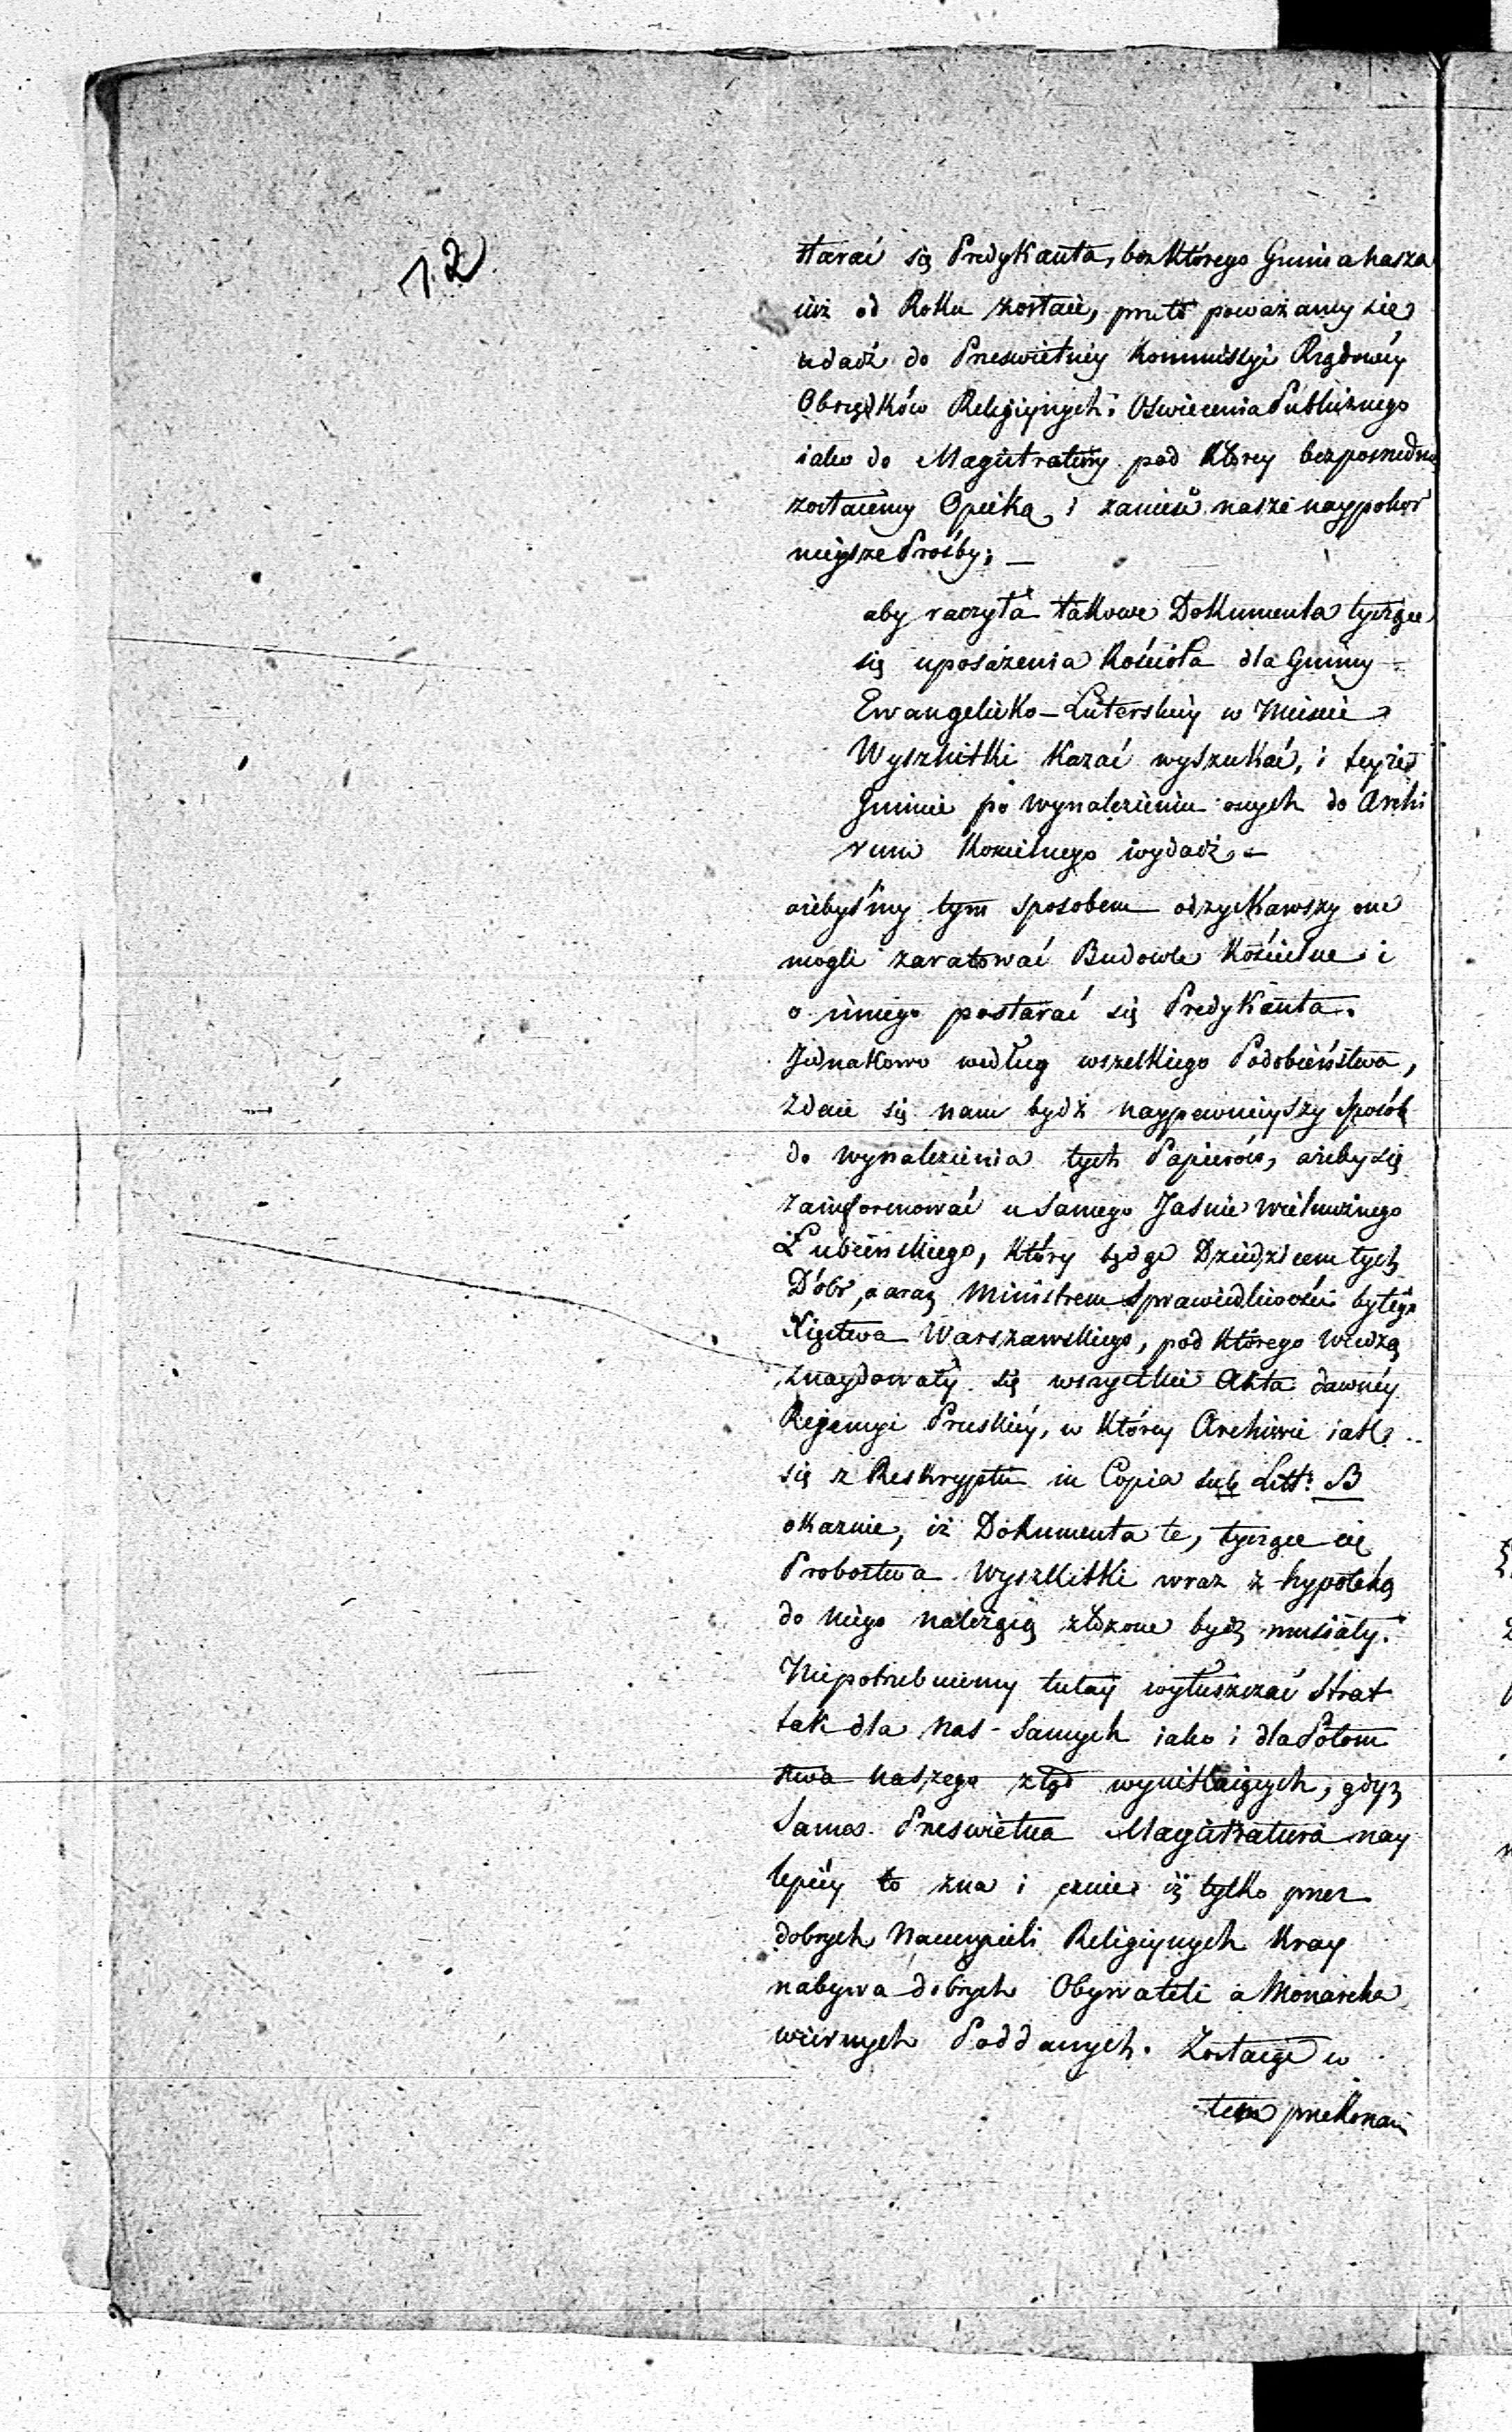 12
starać się Predykanta, bez którego Gmina nasza
iuż od Roku zostaie, przeto poważamy się
udadź do Prześwietnéy Kommissyi Rządowéy
Obrządków Religiynych i Oświecenia Publicznego
iako do Magistratury pod którey bezpośrednią
zostaiemy Opieką, i zanieść nasze naypokor
nieysze Prośby; —
aby raczyła takowe Dokumenta tyczące
się uposażenia Kościoła dla Gminy
Ewangelicko-Luterskiey w Mieście
Wyszkitki kazać wyszukać, i teyże
Gminie po wynalezieniu onych do Archi
vum Kościelnego wydadź, —
ażebyśmy tym sposobem odzyskawszy one
mogli zaratować Budowle Kościelne i
o innego postarać się Predykanta.
Jednakowo według wszelkiego Podobieństwa,
zdaie się nam bydź naypewnieyszy sposób
do wynalezienia tych Papierów, ażeby się
zainformować u samego Jaśnie Wielmożnego
Łubieńskiego, który będąc Dziedzicem tych
Dóbr, a oraz Ministrem Sprawiedliwości byłego
Xięstwa Warszawskiego, pod którego Wiedzą
znaydowały się wszystkie Akta dawnéy
Rejencyi Pruskiéy, w którey Archiwie iak
się z Reskryptu in Copia sub Litt: B
okazuie, iż Dokumenta te, tyczące się
Probostwa Wyszkitki wraz z hypoteką
do niego należącą złożone bydź musiały.
Niepotrzebuiemy tutay wyłuszczać Strat
tak dla nas samych iako i dla Potom
stwa naszego ztąd wynikaiących, gdyż
Sama Prześwietna Magistratura nay
lepiéy to zna i czuie iż tylko przez
dobrych Nauczycieli Religiynych Kray
nabywa dobrych Obywateli a Monarcha
wiernych Poddanych. Zostaiąc w
tem przekonaniu